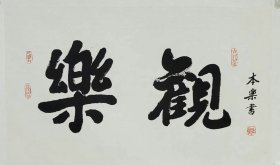 觀樂
本樂書